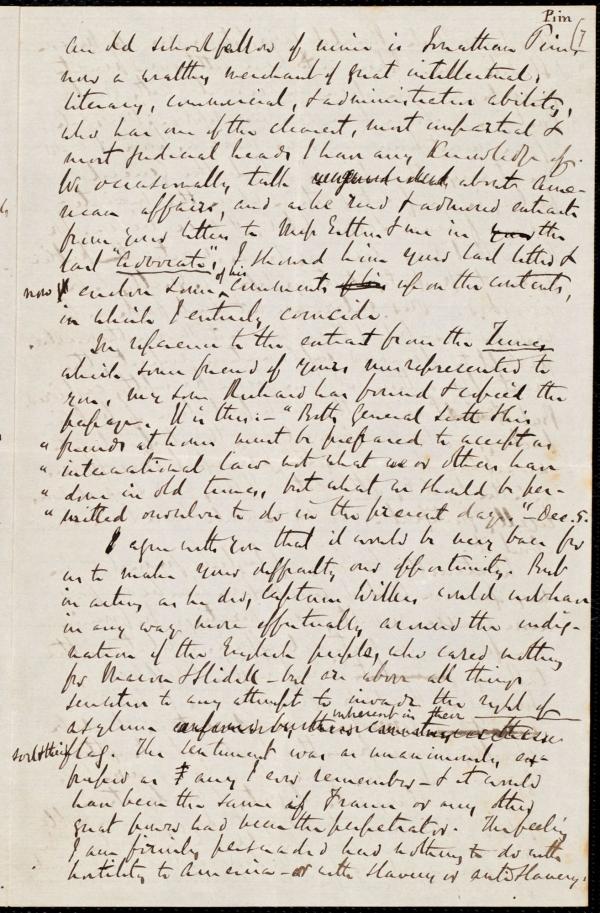 Pim (7
An old schoolfellow of mine is Jonathan Pim,
now a wealthy merchant of great intellectual,
literary, commercial, & administrative ability,
who has one of the clearest, most impartial &
most judicial heads I have any knowledge of.
We occasionally talk about Ame-
rican affairs, and as he read & admired extracts
from your letters to Miss Estlin & me in the
last "Advocate", I showed him your last letter &
now enclose some of his comments upon the contents,
in which I entirely coincide.
In reference to the extract from the Times
which some friend of yours misrepresented to
you, my son Richard has found & copied the
passage. It is this:- "Both General Scott & his
" friends at home must be prepared to accept as
" international law not what we or others have
" done in old times, but what we should be per-
" mitted ourselves to do in the present day." - Dec. 5.
I agree with you that it would be very base for
us to make your difficulty our opportunity. But
in acting as he did, Captain Wilkes could not have
in any way more effectually aroused the indig-
nation of the English people, who cared nothing
for Mason & Slidell - but are above all things
sensitive to any attempt to invade the right of
asylum inherent in their
soil & their flag. The sentiment was as unanimously ex-
pressed as any I ever remember - & it would
have been the same if France or any other
great power had been the perpetrator. The feeling
I am firmly persuaded had nothing to do with
hostility to America - or with slavery or anti-slavery.